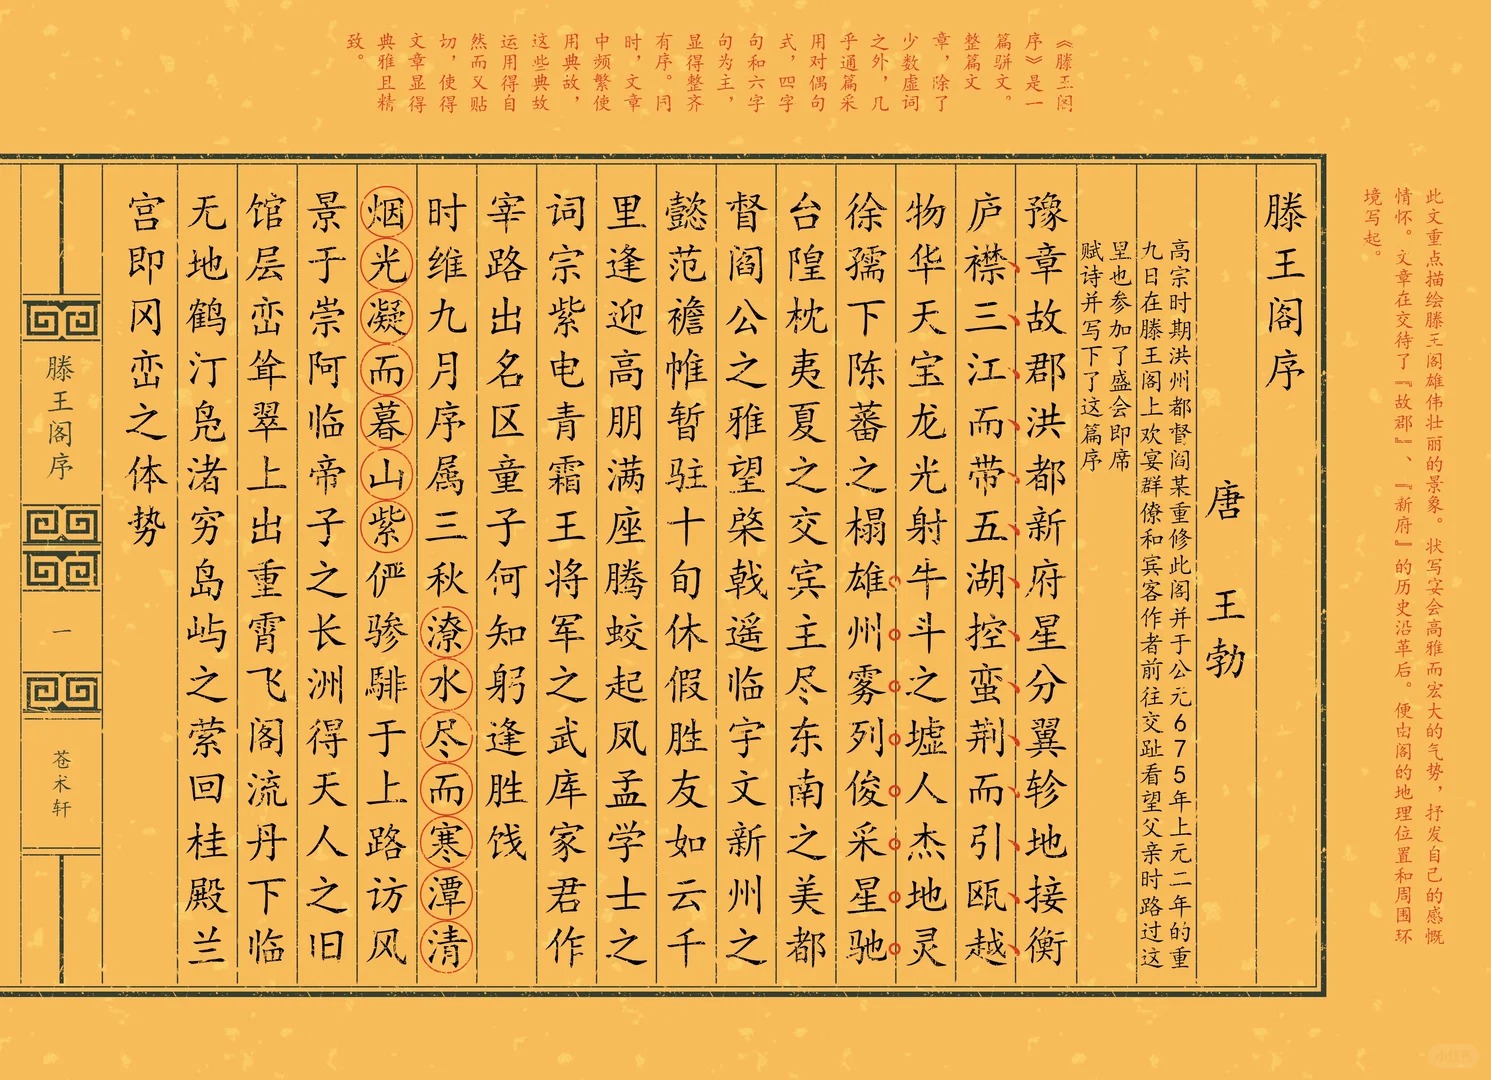 此文重点描绘滕王阁雄伟壮丽的景象。状写宴会高雅而宏大的气势，抒发自己的感慨
情怀。文章在交待了『故郡』、『新府』的历史沿革后。便由阁的地理位置和周围环
境写起。
《滕王阁
序》是一
篇骈文。
整篇文
章，除了
少数虚词
之外，几
乎通篇采
用对偶句
式，四字
句和六字
句为主，
显得整齐
有序。同
时，文章
中频繁使
用典故，
这些典故
运用得自
然而又贴
切，使得
文章显得
典雅且精
致。
滕王阁序
唐 王勃
高宗时期洪州都督阎某重修此阁并于公元675年上元二年的重
九日在滕王阁上欢宴群僚和宾客作者前往交趾看望父亲时路过这
里也参加了盛会即席
赋诗并写下了这篇序
豫章故郡洪都新府星分翼轸地接衡
庐襟三江而带五湖控蛮荆而引瓯越
物华天宝龙光射牛斗之墟人杰地灵
徐孺下陈蕃之榻雄州雾列俊采星驰
台隍枕夷夏之交宾主尽东南之美都
督阎公之雅望棨戟遥临宇文新州之
懿范襜帷暂驻十旬休假胜友如云千
里逢迎高朋满座腾蛟起凤孟学士之
词宗紫电青霜王将军之武库家君作
宰路出名区童子何知躬逢胜饯
时维九月序属三秋潦水尽而寒潭清
烟光凝而暮山紫俨骖騑于上路访风
景于崇阿临帝子之长洲得天人之旧
馆层峦耸翠上出重霄飞阁流丹下临
无地鹤汀凫渚穷岛屿之萦回桂殿兰
宫即冈峦之体势
滕王阁序
一
苍术轩
小红书